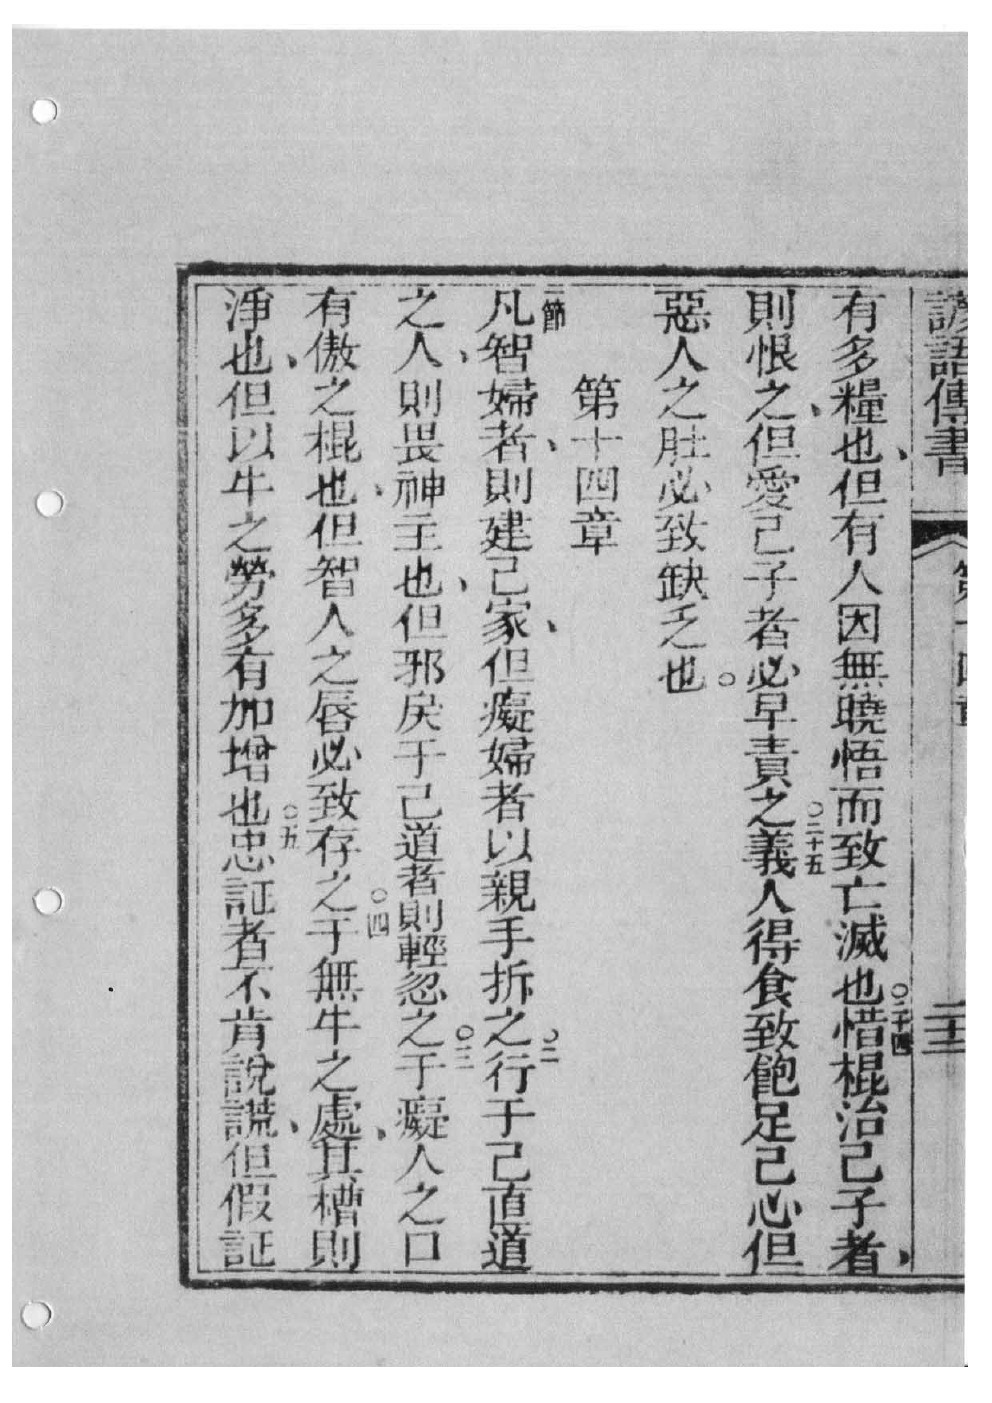 諺語傳書 第十四章 二十三
有多糧也、但有人因無曉悟而致亡滅也○二十四惜棍治己子者、
則恨之、但愛己子者必早責之○二十五義人得食致飽足己心但
惡人之肚必致缺乏也○
第十四章
凡一節智婦者、則建己家、但癡婦者以親手拆之○二行于己直道
之人、則畏神主也、但邪戾于己道者則輕忽之○三于癡人之口
有傲之棍也、但智人之唇必致存之○四于無牛之處、其槽則
淨也、但以牛之勞多有加增也○五忠証者不肯說謊、但假証